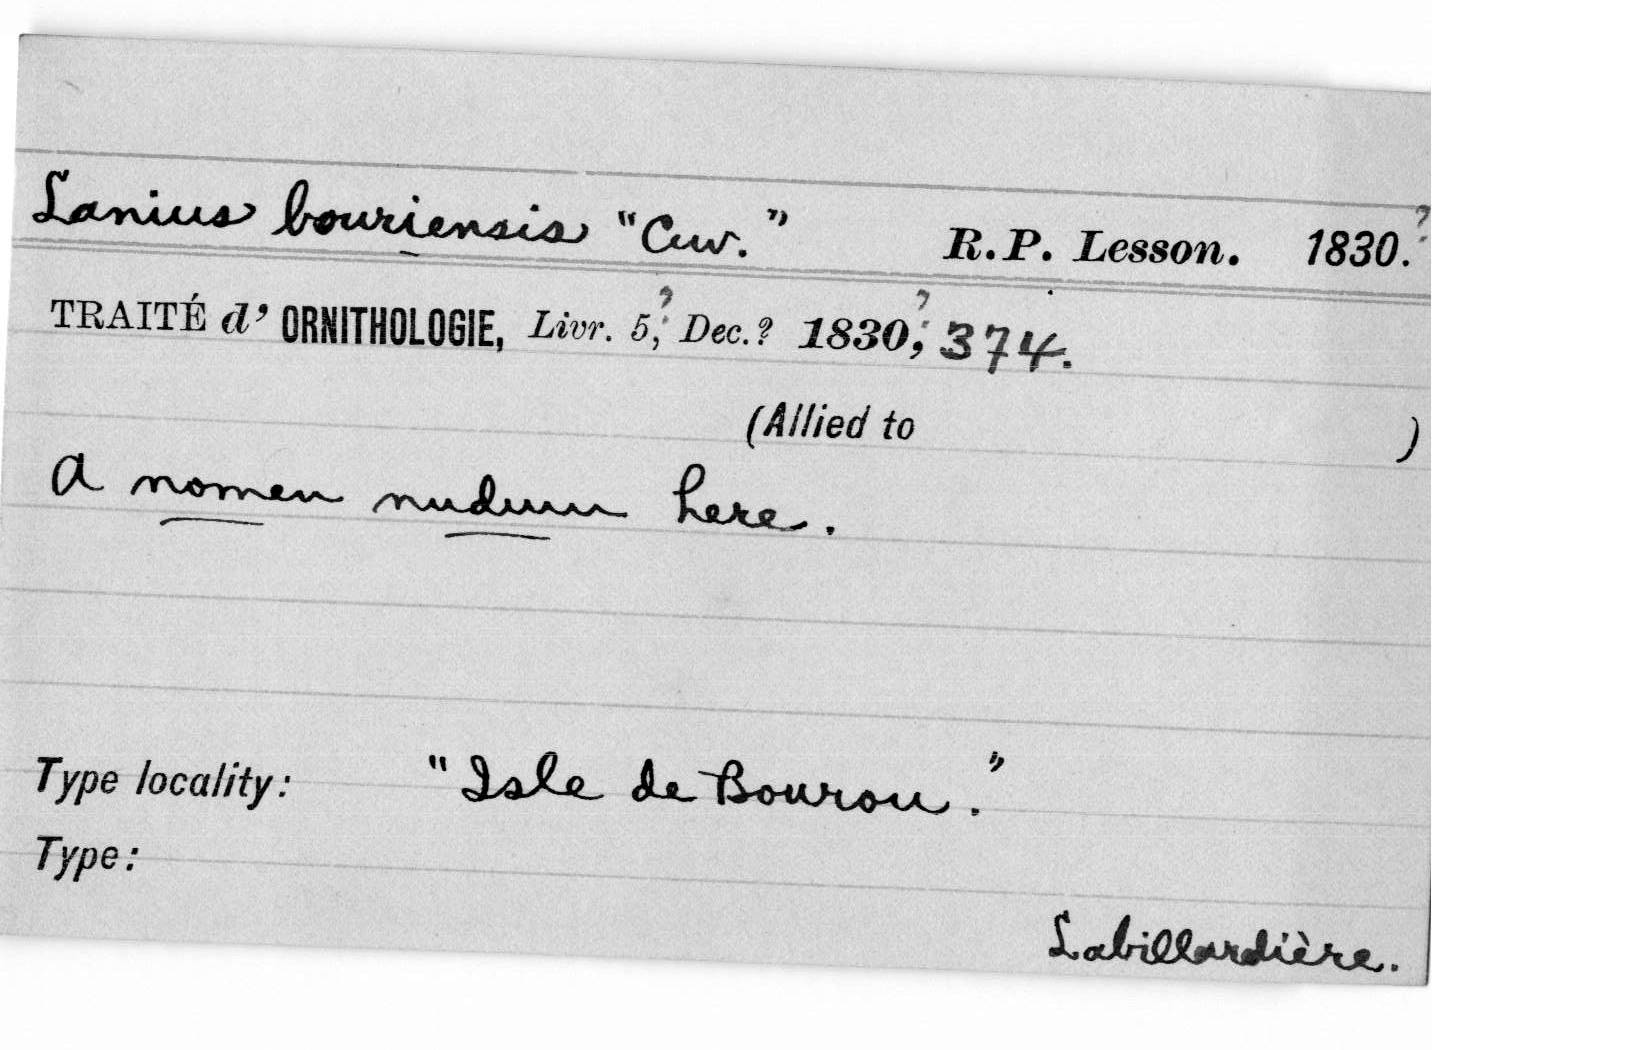 Lanius bouriensis "Cuv." R.P. Lesson. 1830.?
TRAITÉ d' ORNITHOLOGIE, Livr. 5,? Dec.? 1830,? 374.
(Allied to )
A nomen nudum here.
Type locality: "Isle de Bourou."
Type:
Labillardière.